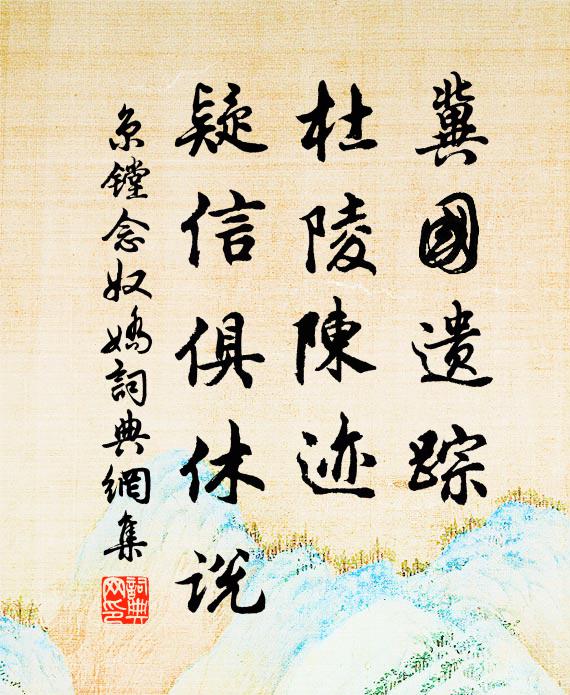 冀國遺踪
杜陵陳迹
疑信俱休说
京鏜念奴嬌詞典網集
詞典網印